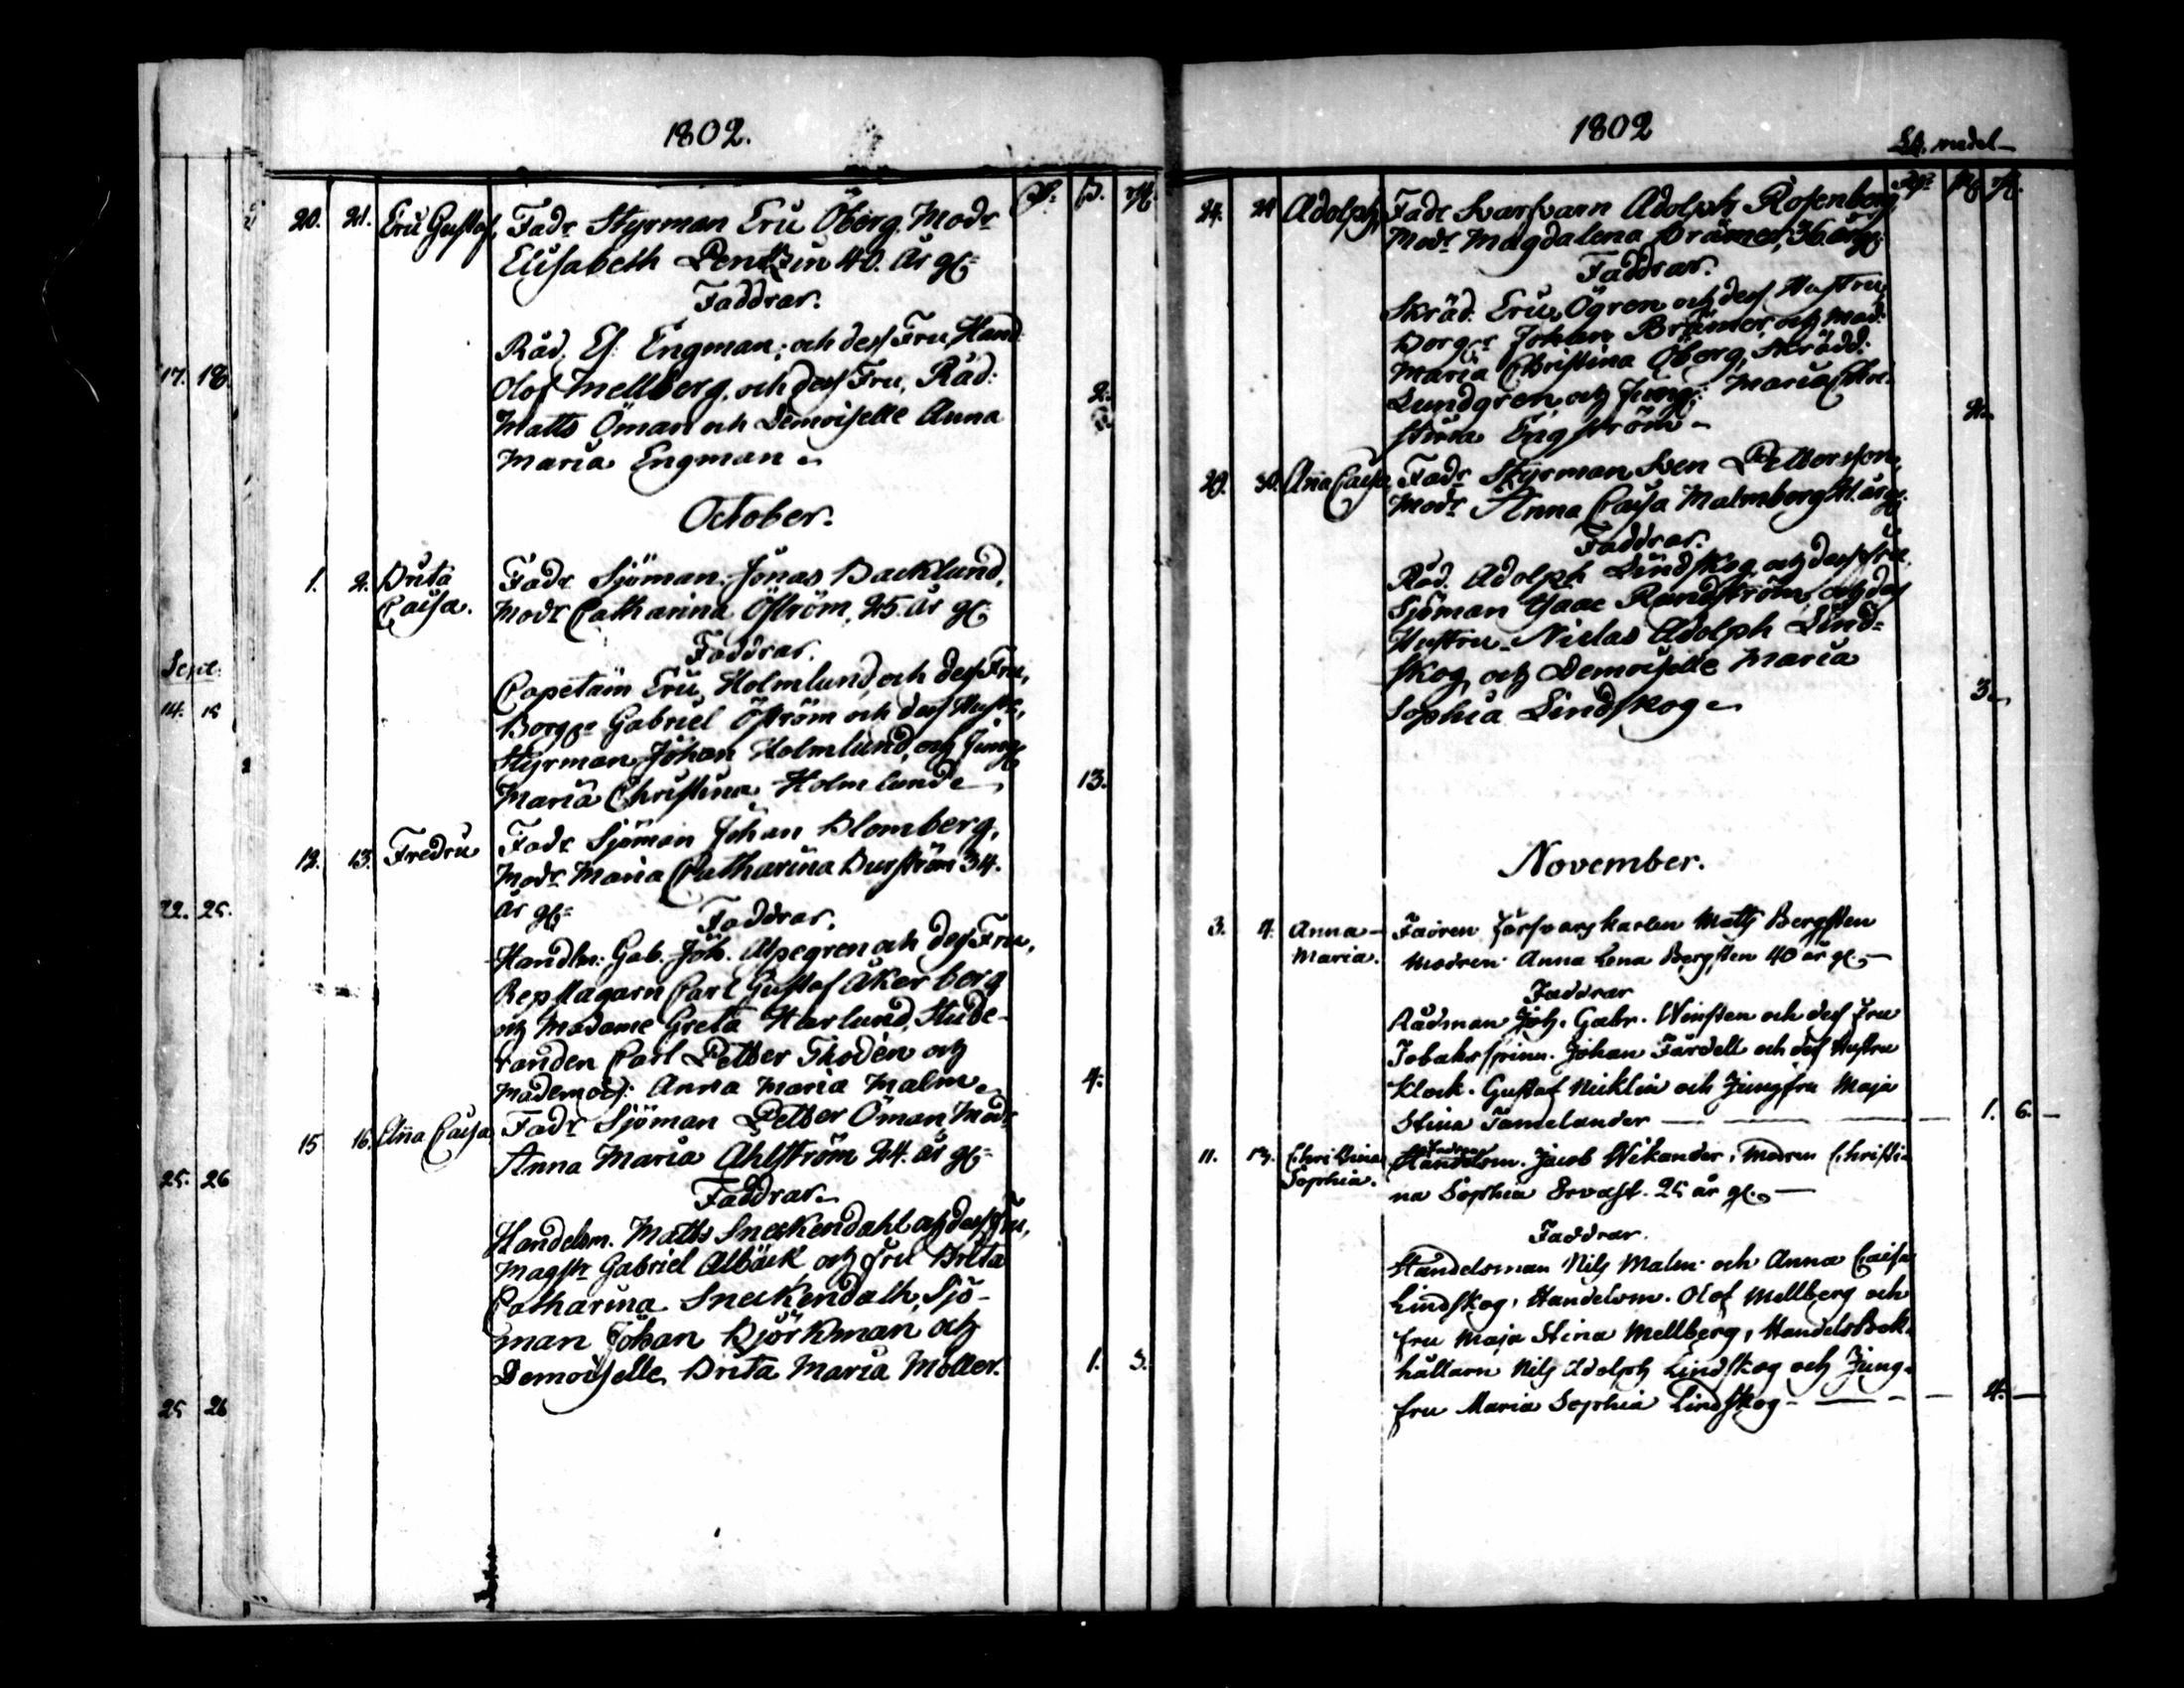 1802.
20. 21. Eric Gustaf, Fadr Styrman Eric Öberg. Modr
Elisabeth Pentzin 40. år gl:
Faddrar.
Råd. El. Engman, och dess Fru, Hand:
Olof Mellberg, och dess Fru, Råd:
Matts Öman och Demoiselle Anna
Maria Engman
2.
October.
1. 2. Brita Caisa. Fadr Sjöman Jonas Backlund,
Modr Catharina Öström, 25. år gl:
Faddrar.
Capetain Eric Holmlund och dess Fru,
Borg:r Gabriel Öström och dess Hustr,
Styrman Johan Holmlund, och Jungf
Maria Christina Holmlund
13.
12. 13. Fredric Fadr Sjöman Johan Blomberg,
Modr Maria Catharina Burström 34.
år gl:
Faddrar.
Handln: Gab. Joh. Aspegren och dess Fru,
Repslagarn Carl Gustaf Åkerberg
och Madame Greta Harlund, Stude-
randen Carl Petter Thodén och
Mademois: Anna Maria Malm
4.
15 16. Anna Caisa Fadr Sjöman Petter Öman Modr
Anna Maria Ahlström 24. år gl:
Faddrar.
Handelsm. Matts Sneckendahl och dess Fru,
Magistr Gabriel Albäck och Fru Brita
Catharina Sneckendalh, Sjö-
man Johan Björkman och
Demoiselle Brita Maria Möller.
1. 3.
17. 18.
Sept.
14. 15
22. 25.
25. 26
25 26
1802
medel
24. 24 Adolph, Fadr Svarfvarn Adolph Rosenberg,
Modr Magdalena Brämer, 36. år gl:
Faddrar.
Skräd: Eric Ögren och dess Hustru,
Borg:r Johan Brämer och Mad:
Maria Christina Öberg, Skrädd:
Lundgren och Jungf: Maria Chri-
stina Engström
2.
29. 30. Anna Caisa Fadr Styrman Sven Pettersson,
Modr Anna Caisa Malmberg år gl.
Faddrar.
Råd. Adolph Lindskog och dess Fru,
Sjöman Isaac Randström, och dess
Hustru, Niclas Adolph Lind-
skog och Demoiselle Maria
Sophia Lindskog
3.
November.
3. 4. Anna Maria. Fadren Försvarskarlen Matts Bergsten
Modren Anna Lena Bergsten 40 år gl.
Faddrar
Rådman Joh. Gabr. Winsten och dess Fru
Tobaksspinn. Johan Färdell och dess Hustru
Klock. Gustaf Nicklin och Jungfru Maja
Stina Tamelander
1. 6.
11. 13. Christina Sophia. Fadren
Handelsm. Jacob Wikander, Modren Christi-
na Sophia Ervast. 25 år gl.
Faddrar.
Handelsman Nils Malm och Anna Caisa
Lindskog, Handelsm. Olof Mellberg och
Fru Maja Stina Mellberg, Handels Bok-
hållarn Nils Adolph Lindskog och Jung-
fru Maria Sophia Lindskog
4.